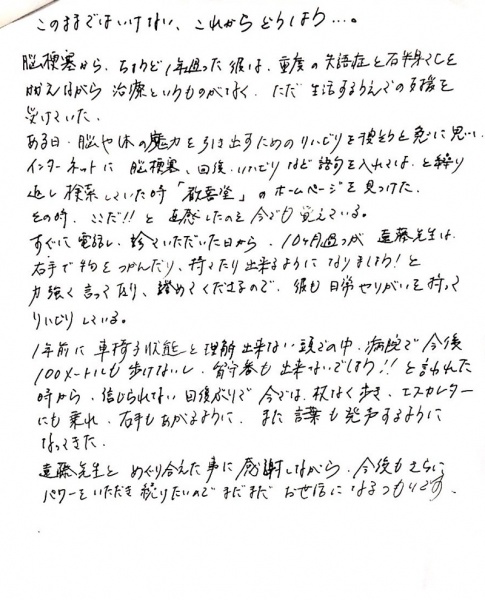 このままではいけない、これからどうしよう…。
脳梗塞から、ちょうど1年過った彼は、重度の失語症と右半身マヒを
抱えながら 治療というものがなく、ただ生活するうえでの支援を
受けていた。
ある日、脳や体の魔力を引き出すためのリハビリを 急に思い、
インターネットに 脳梗塞、回復、リハビリなど語句を入れては、と繰り
返し検索していた時「歓喜堂」のホームページを見つけた。
その時、ここだ!!と直感したのを今でも覚えている。
すぐに電話し、診ていただいた日から、10ヶ月過つが 遠藤先生は、
右手で物をつかんだり、持てたり出来るようになりましょう!と
力強く言って下り、褒めてくださるので、彼も日常やりがいを持って
リハビリしている。
1年前に 車椅子状態と理解出来ない頭での中、病院で今後
100メートルも歩けないし、留守番も出来ないでしょう!!と言われた
時から、信じられない回復ぶりで今では、杖なく歩き、エスカレター
にも乗れ、右手もあがるように、また言葉も発声するように
なってきた。
遠藤先生と めぐり会えた事に感謝しながら、今後もさらに
パワーをいただき 頑りたいのでまだまだ お世話になるつもりです。